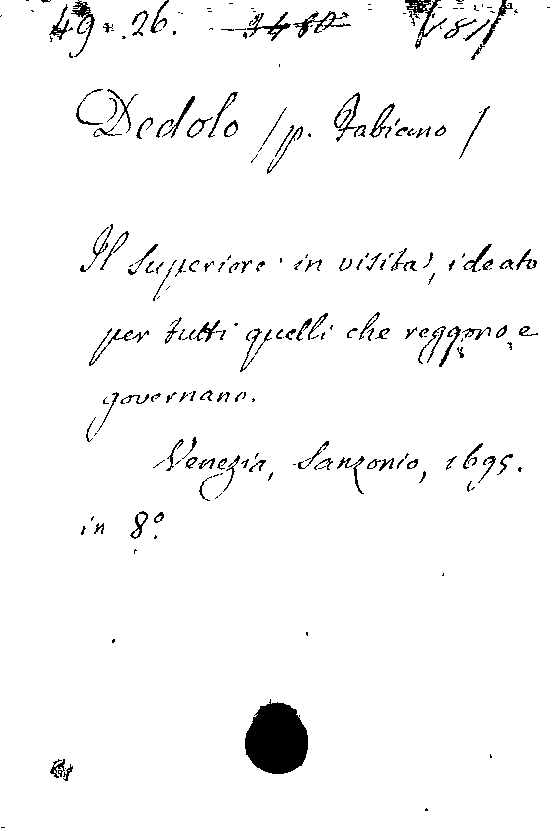 49. .26. 3480 (181)
Dedolo / p. Fabiano /
Il Superiore in visita, ideato
per tutti quelli che reggono e
governano.
Venezia, Sanzonio, 1695.
in 8º